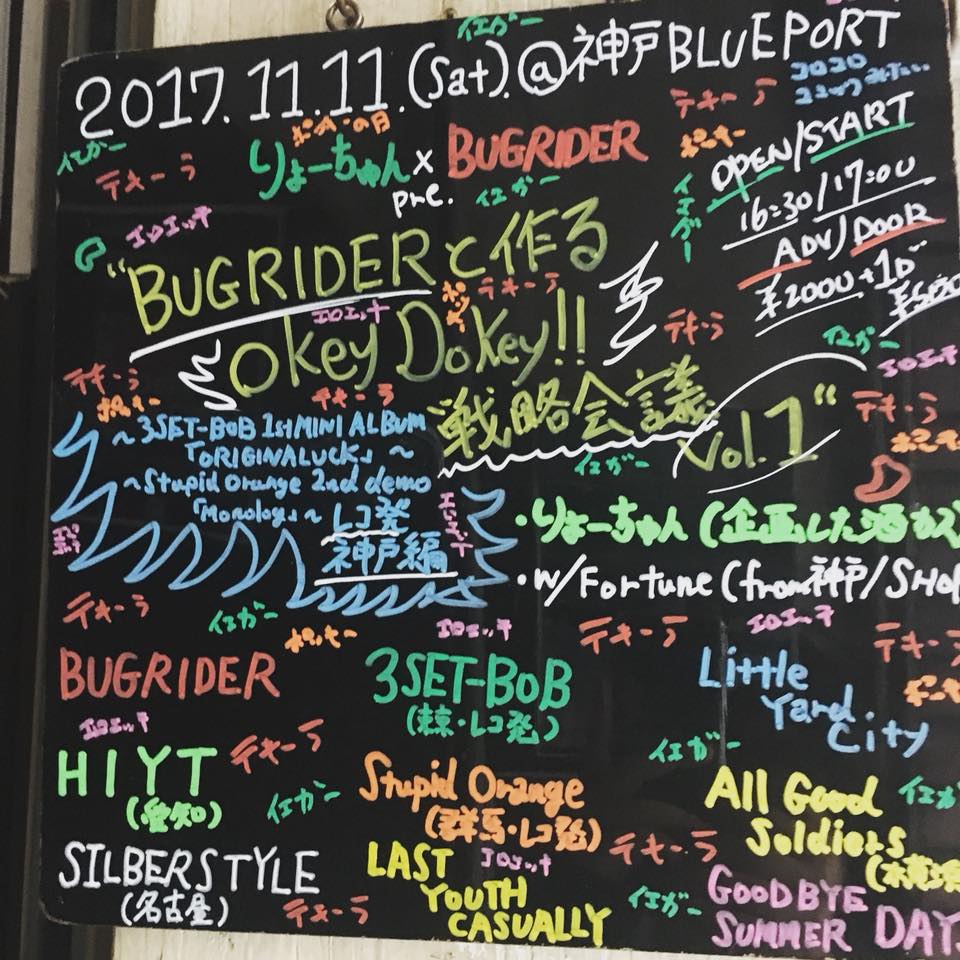 2017.11.11.(Sat).@神戸BLUEPORT
イエガー
テキーラ
イエガー
テキーラ
りょーちゃん × BUGRIDER
pre.
イエガー
OPEN/START
16:30/17:00
ADV/DOOR
¥2000+1D
"BUGRIDERと作る
テキーラ
okey Dokey!!
テキーラ
イエガー
テキーラ
テキーラ
テキーラ
戦略会議
Vol.1"
~3SET-BOB 1st MINI ALBUM
「ORIGINALUCK」~
~Stupid Orange 2nd demo
「Monolog」~レコ発
神戸編
イエガー
・りょーちゃん(企画した酒カス
・w/Fortune(from神戸/SHO
テキーラ
イエガー
ポッキー
テキーラ
テキーラ
BUGRIDER
3SET-BOB
(東京・レコ発)
Little
Yard
City
HIYT
(愛知)
テキーラ
イエガー
Stupid Orange
(群馬・レコ発)
イエガー
All Good
Soldiers
テキーラ
SILBERSTYLE
(名古屋)
テキーラ
LAST
YOUTH
CASUALLY
イエガー
GOODBYE
SUMMER DAY